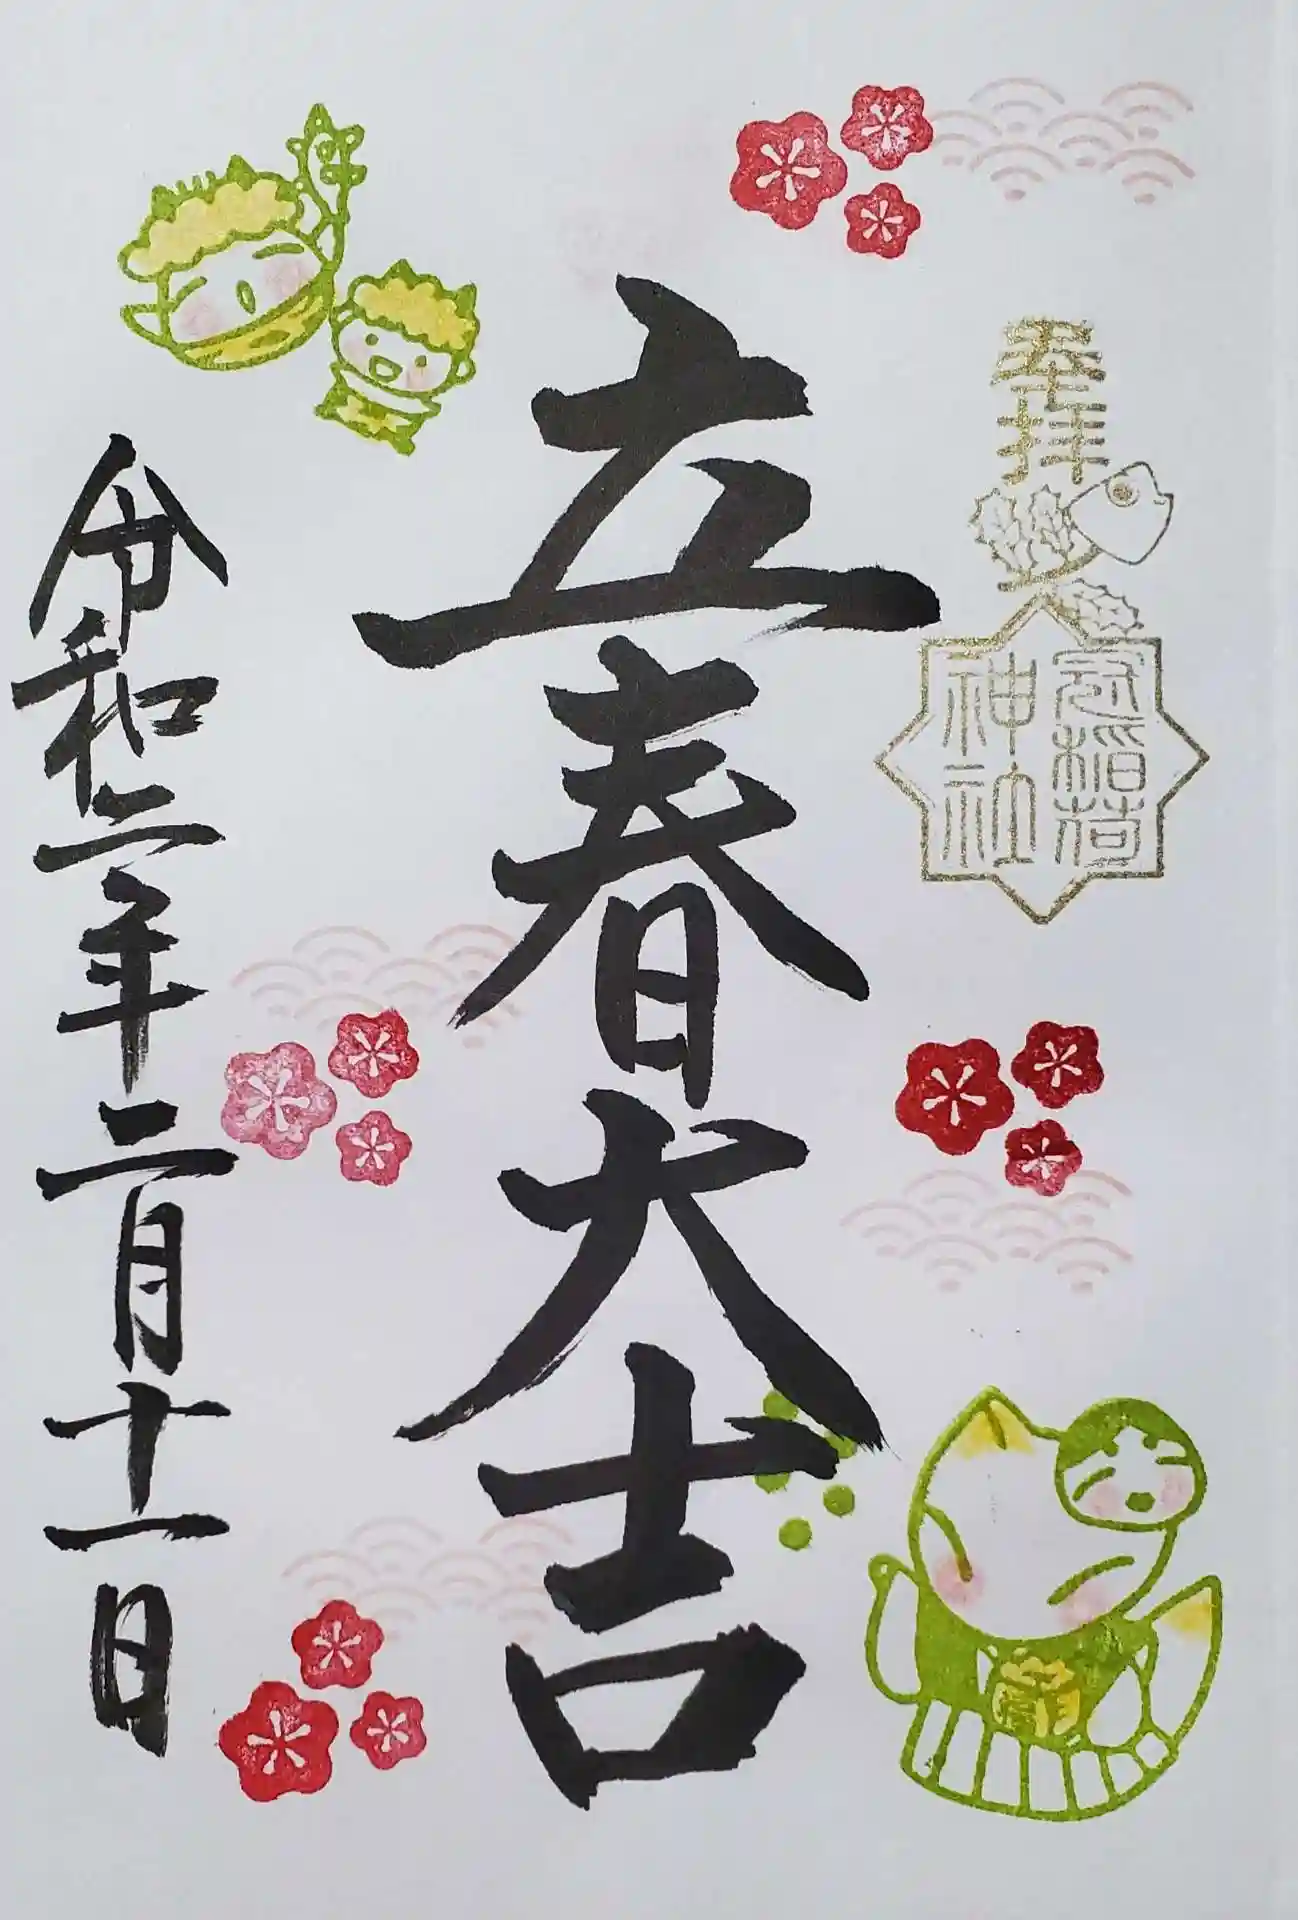 奉拝
冠稲荷
神社
立春大吉
令和二年二月十一日